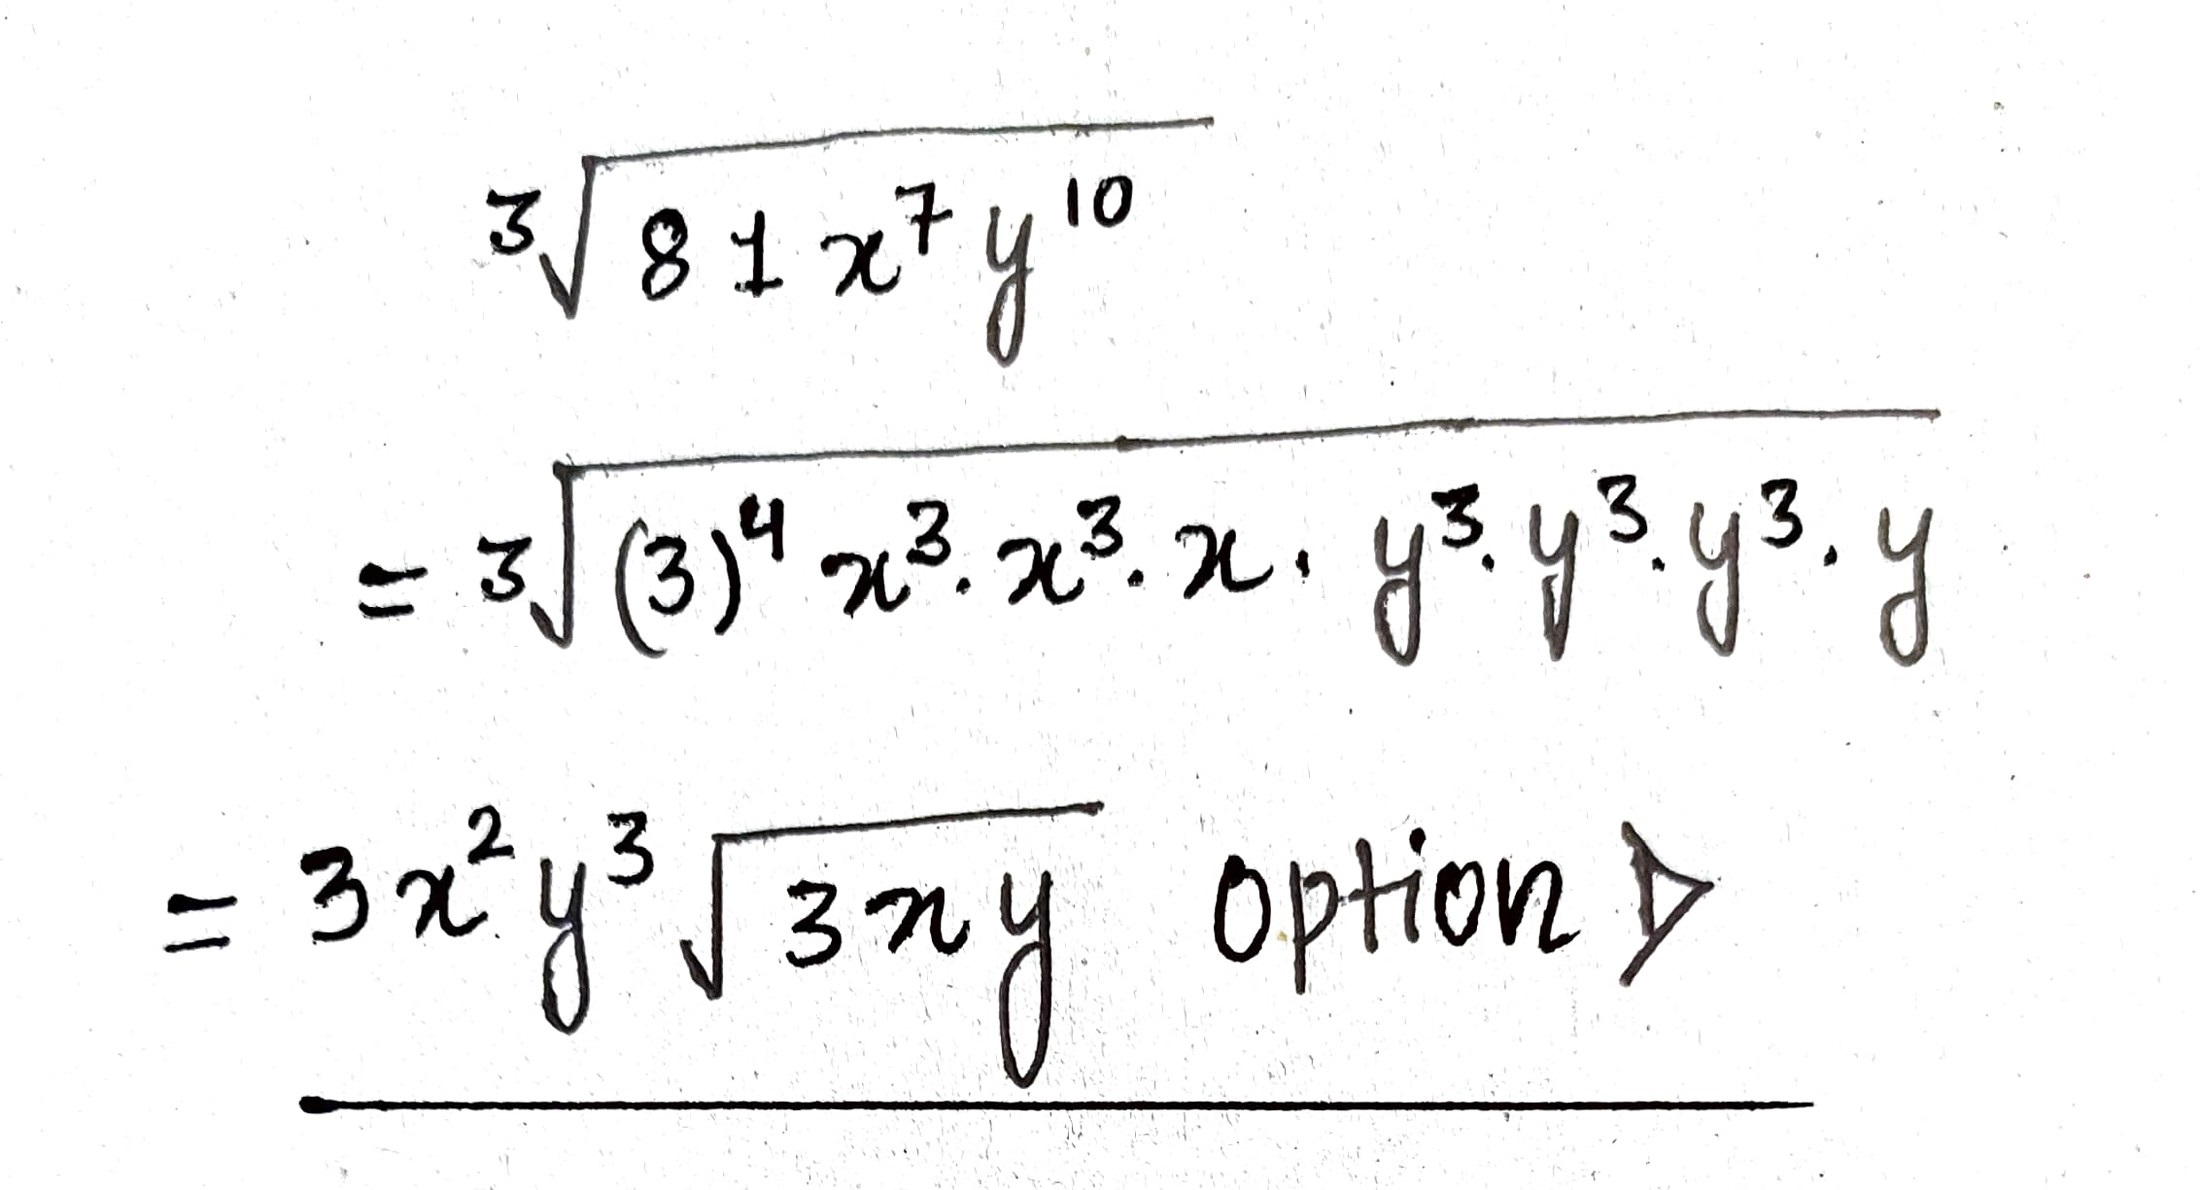 ∛(81x⁷y¹⁰)
= ∛((3)⁴x³·x³·x·y³·y³·y³·y)
= 3x²y³√(3xy) option D